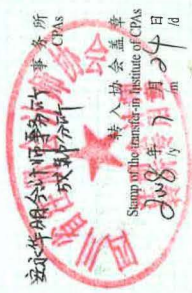 安永华明会计师事务所
成都分所
事务所
CPAs
转入协会盖章
Stamp of the transfer-in Institute of CPAs
2008年 7月 24日
/y /m /d